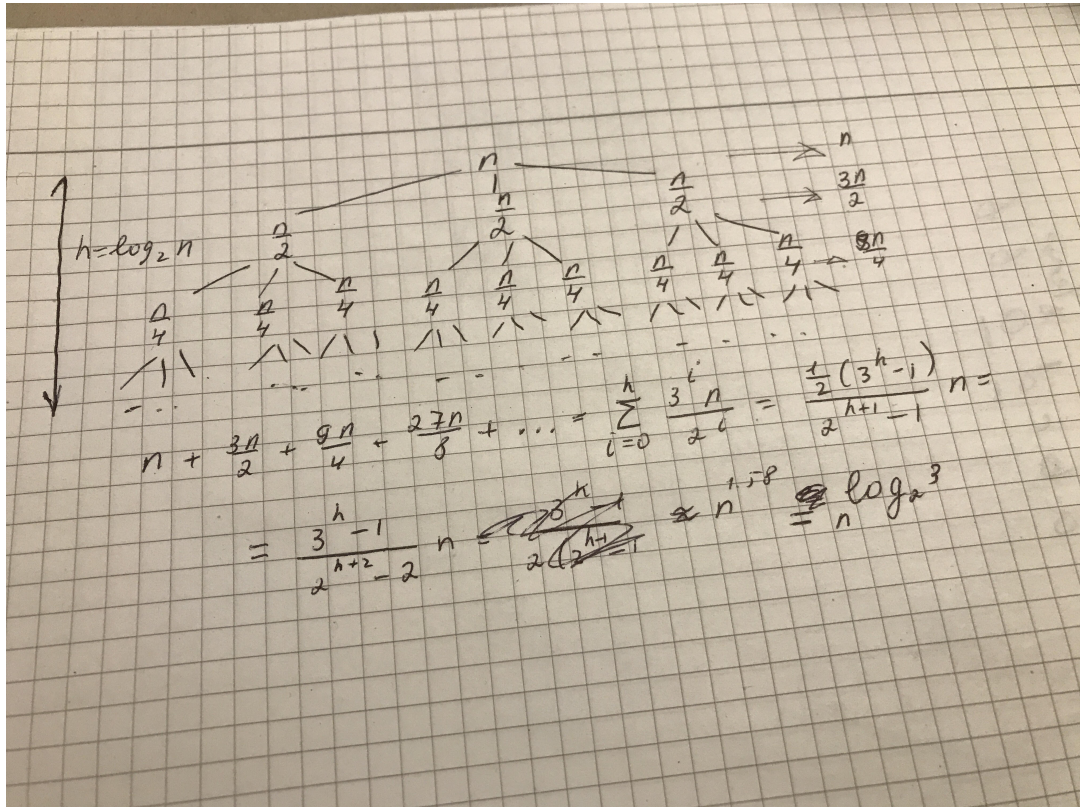 n → n
n/2 n/2 n/2 → 3n/2
h = log₂ n
n/4 n/4 n/4 n/4 n/4 n/4 n/4 n/4 n/4 → 9n/4
... .. -- -- - .. ..
n + 3n/2 + 9n/4 + 27n/8 + ... = ∑_{i=0}^{h} 3^i n / 2^i = (1/2 (3^h - 1)) / (2^{h+1} - 1) n =
= (3^h - 1) / (2^{h+2} - 2) n ≈ n^{1,58} = n^{log₂ 3}